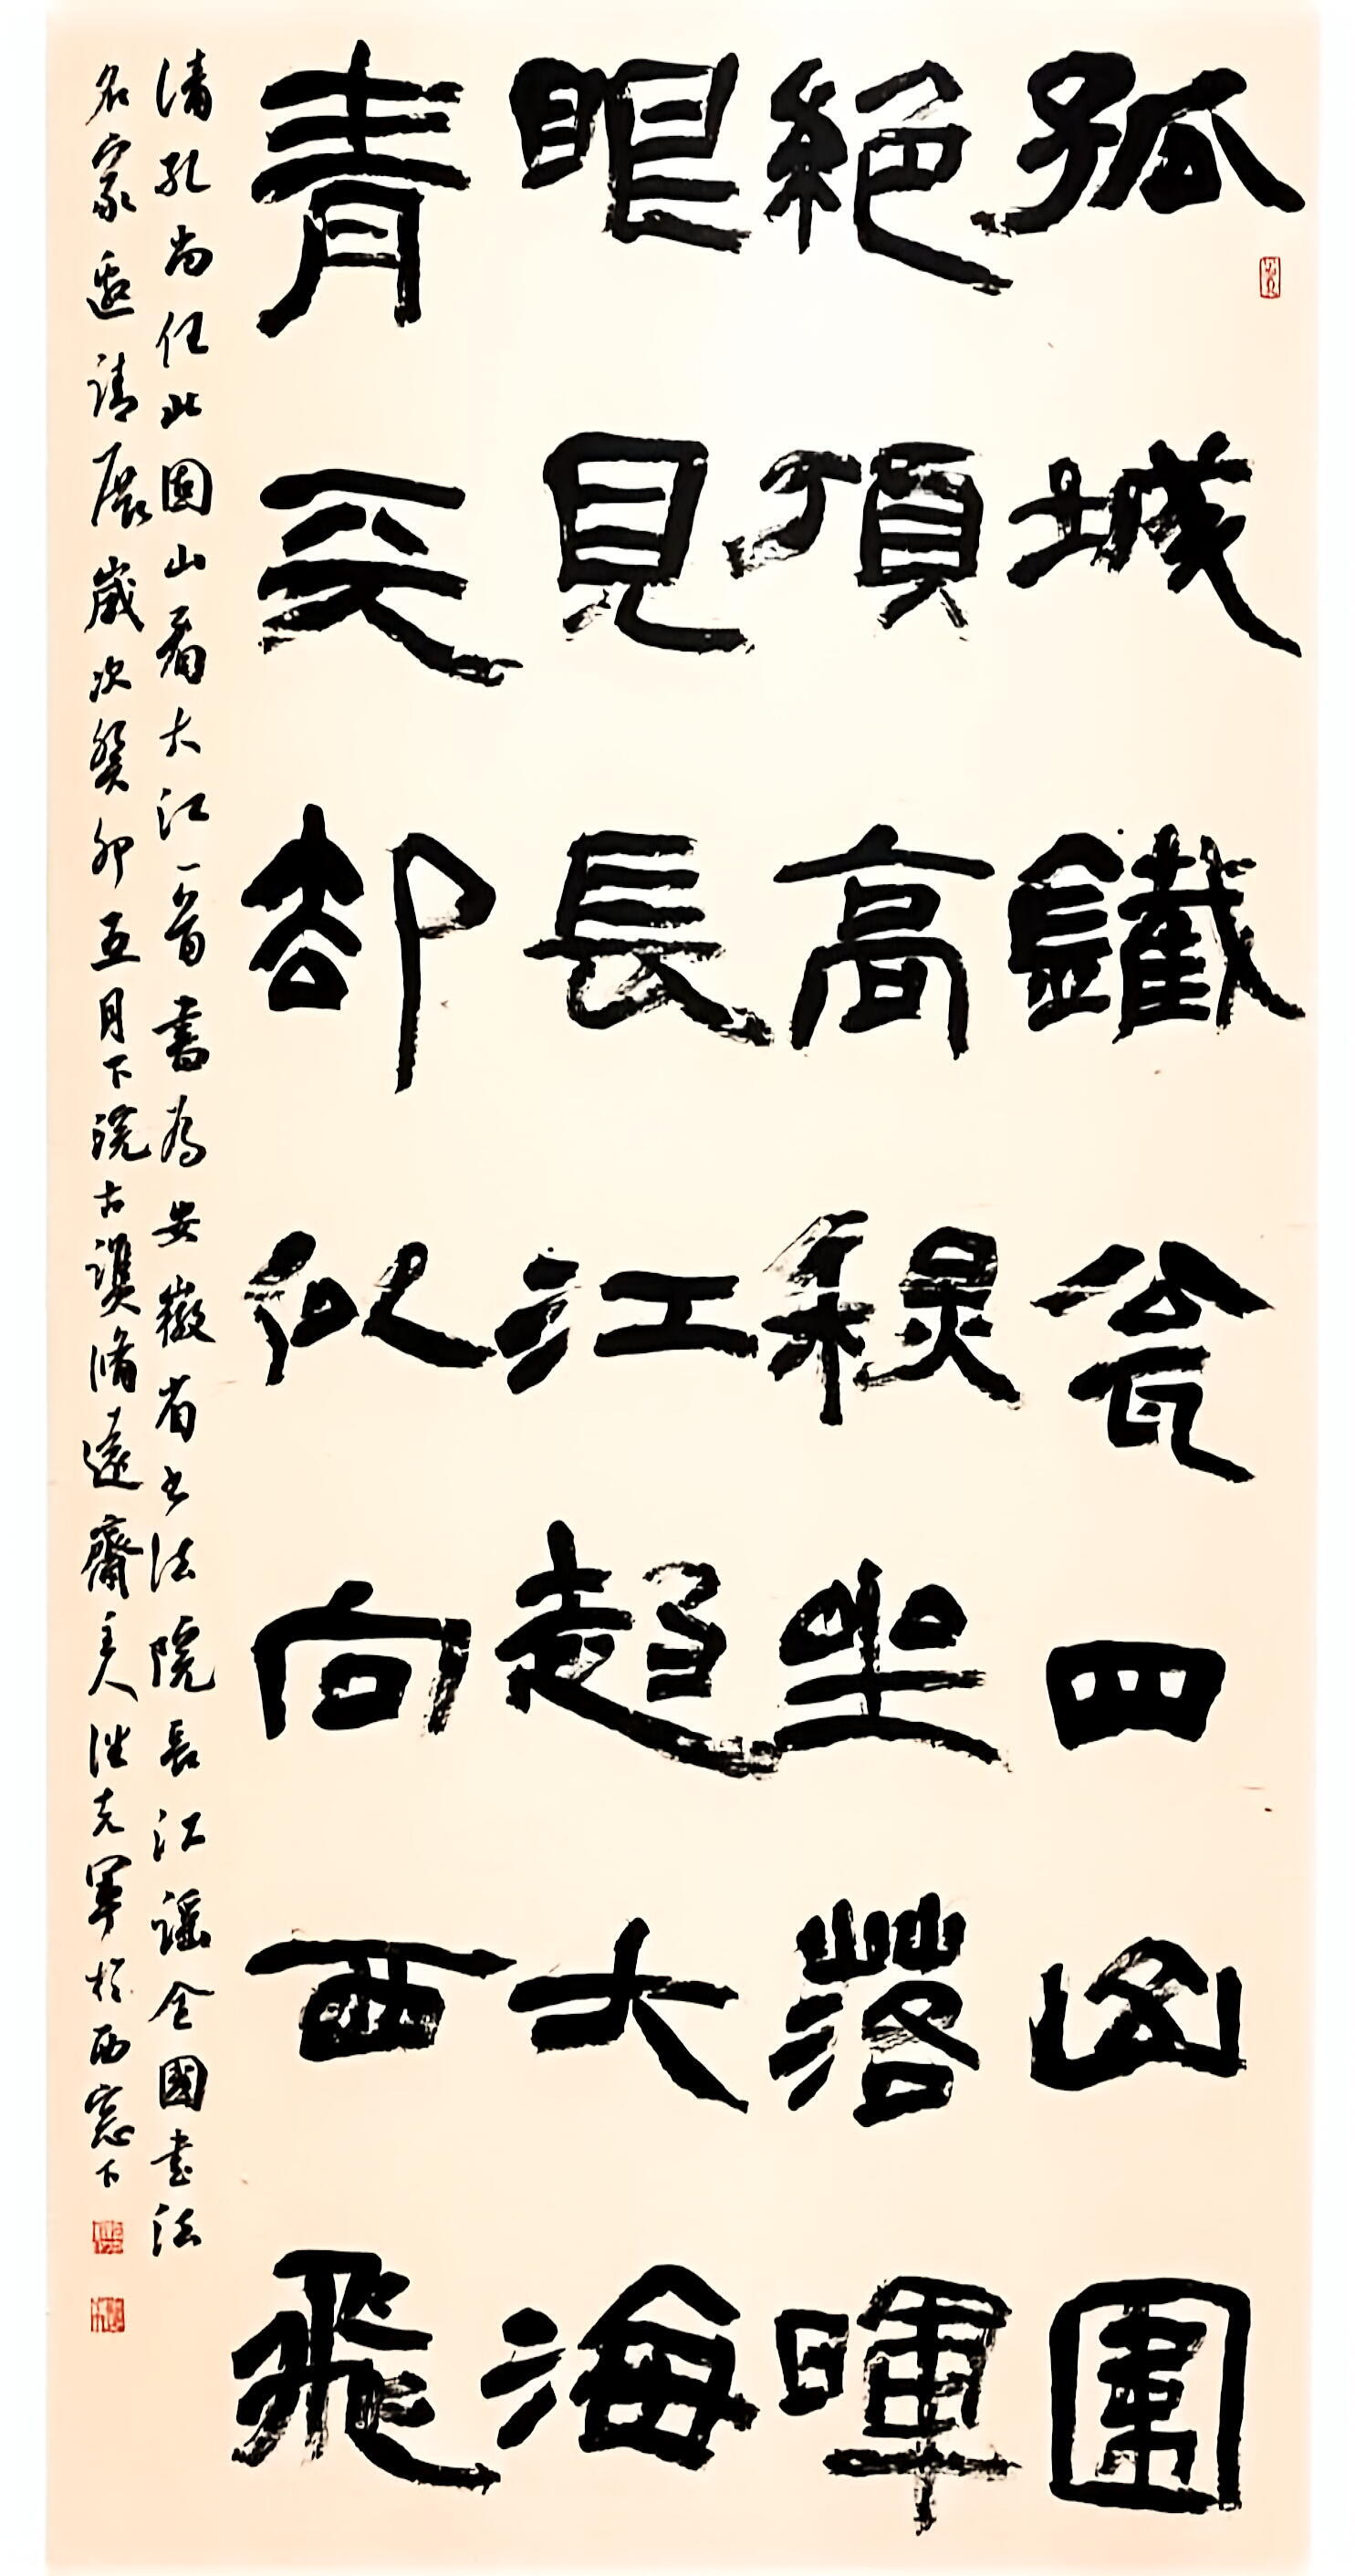 孤城鐵瓮四山圍
絕頂高秋坐落暉
眼見長江趨大海
青天却似向西飛
清孔尚任北固山看大江一首書为安徽省书法院長江謡全國書法
名家邀請展歲次癸卯五月下浣古譙脩遠齋主人汪克軍於西窓下